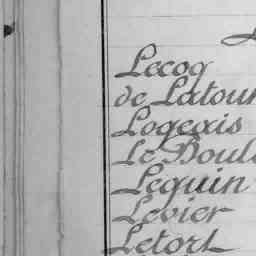 Lecoq
de Latour
Logeais
Le Boul
Lequin
Levier
Letort